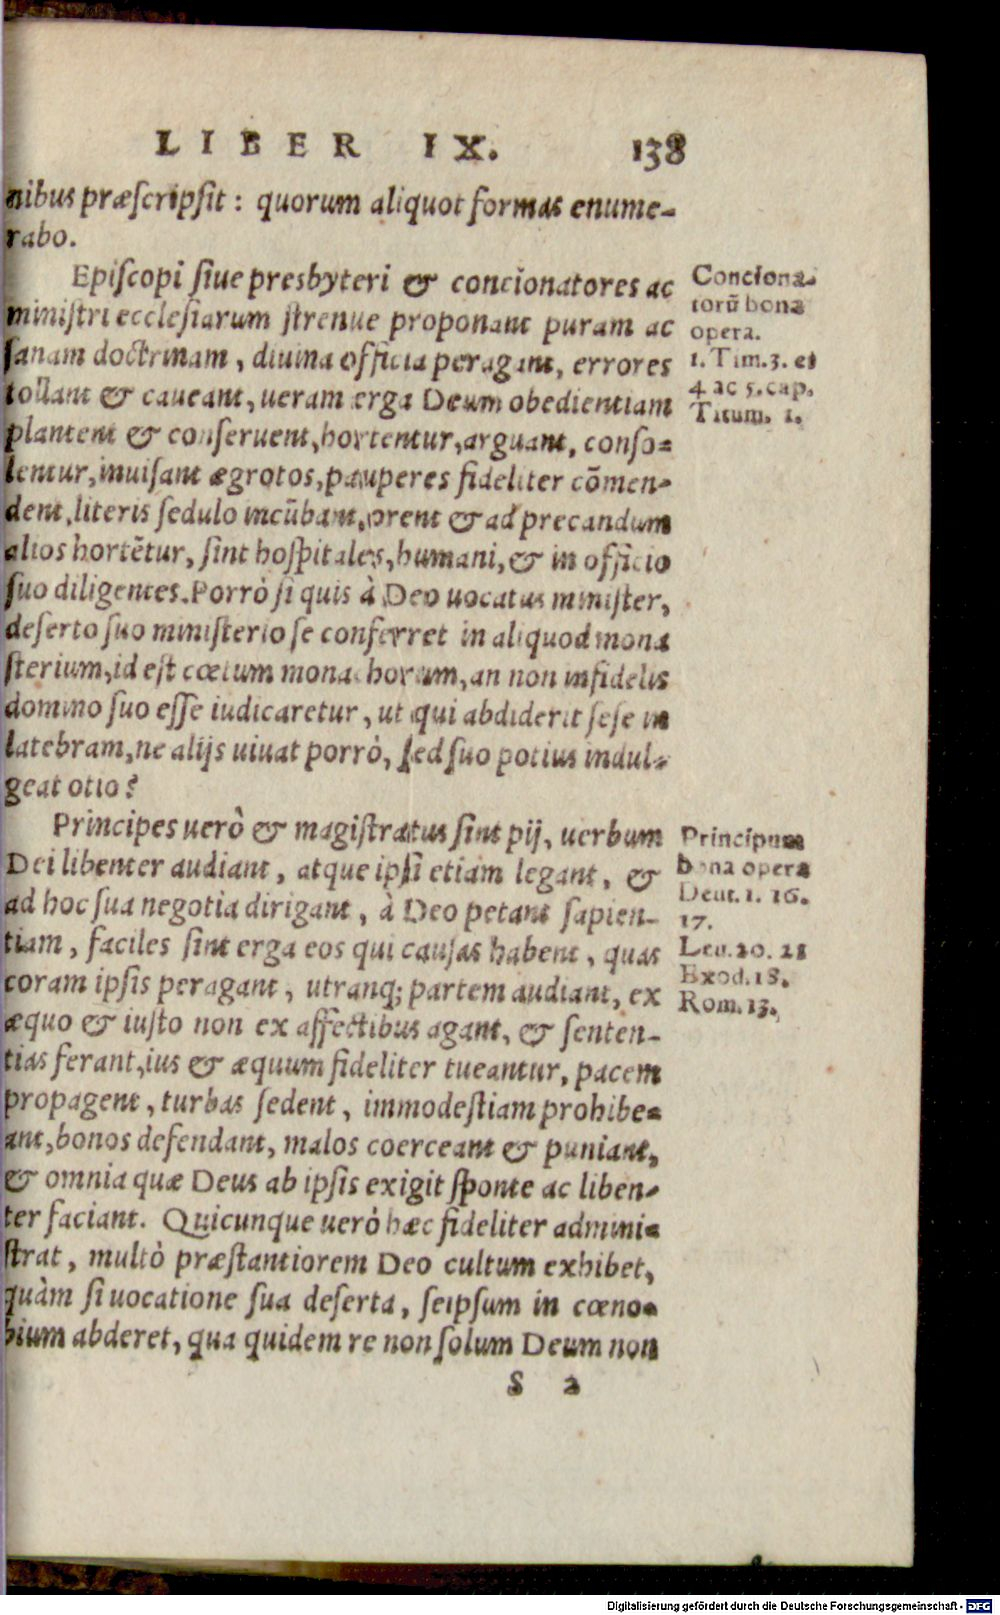 LIBER IX. 138
nibus præſcripſit: quorum aliquot formas enume-
rabo.
Epiſcopi ſiue presbyteri & concionatores ac
miniſtri eccleſiarum ſtrenue proponant puram ac
ſanam doctrinam, diuina officia peragant, errores
tollant & caueant, ueram erga Deum obedientiam
plantent & conſeruent, hortentur, arguant, conſo-
lentur, inuiſant ægrotos, pauperes fideliter cōmen-
dent, literis ſedulo incūbant, orent & ad precandum
alios hortētur, ſint hoſpitales, humani, & in officio
ſuo diligentes. Porrò ſi quis à Deo uocatus miniſter,
deſerto ſuo miniſterio ſe conferret in aliquod mona
ſterium, id est cœtum monachorum, an non infidelis
domino ſuo eſſe iudicaretur, ut qui abdiderit ſeſe in
latebram, ne alijs uiuat porrò, ſed ſuo potius indul-
geat otio?
Principes uerò & magiſtratus ſint pij, uerbum
Dei libenter audiant, atque ipſi etiam legant, &
ad hoc ſua negotia dirigant, à Deo petant ſapien-
tiam, faciles ſint erga eos qui cauſas habent, quas
coram ipſis peragant, utranq; partem audiant, ex
æquo & iuſto non ex affectibus agant, & ſenten-
tias ferant, ius & æquum fideliter tueantur, pacem
propagent, turbas ſedent, immodeſtiam prohibe-
ant, bonos defendant, malos coerceant & puniant,
& omnia quæ Deus ab ipſis exigit ſponte ac liben-
ter faciant. Quicunque uerò hæc fideliter admini-
ſtrat, multò præſtantiorem Deo cultum exhibet,
quàm ſi uocatione ſua deſerta, ſeipſum in cœno-
bium abderet, qua quidem re non ſolum Deum non
S 2
Conciona-
torū bona
opera.
1. Tim. 3. et
4 ac 5. cap.
Titum. 1.
Principum
bona opera
Deut. 1. 16.
17.
Leu. 20. 21
Exod. 18.
Rom. 13.
Digitalisierung gefördert durch die Deutsche Forschungsgemeinschaft - DFG